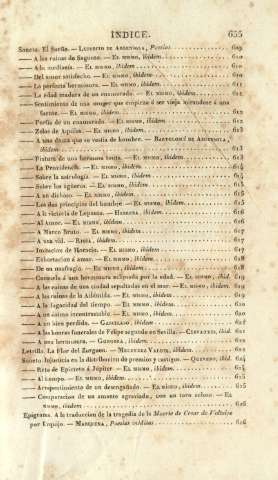 ÍNDICE. 655
Soneto. El Sueño. — LUPERCIO DE ARGENSOLA, Poesías 609
— A las ruinas de Sagunto. — EL MISMO, ibidem 610
— EL MISMO, ibidem 610
— Del amor satisfecho. — EL MISMO, ibidem 610
— La perfecta hermosura. — EL MISMO, ibidem 611
— La edad madura de un enamorado. — EL MISMO, ibidem 611
— Sentimiento de una muger que empieza á ser vieja mirandose á una
fuente. — EL MISMO, ibidem
— Porfía de un enamorado. — EL MISMO, ibidem
— Zelos de Aquiles. — EL MISMO, ibidem
— A una dama que se vestia de hombre. — BARTOLOMÉ DE ARGENSOLA,
ibidem 613
— Pintura de una hermosa tonta. — EL MISMO, ibidem 613
— La Providencia. — EL MISMO, ibidem 614
— Sobre la astrología. — EL MISMO, ibidem 614
— Sobre los agüeros. — EL MISMO, ibidem
— A un dichoso. — EL MISMO, ibidem 615
— Los dos principios del hombre. — EL MISMO, ibidem 615
— A la victoria de Lepanto. — HERRERA, ibidem 616
— Al Amor. — EL MISMO, ibidem 616
— A Marco Bruto. — EL MISMO, ibidem 617
— A una vid. — RIOJA, ibidem 617
— Imitacion de Horacio. — EL MISMO, ibidem
— Exhortacion á amar. — EL MISMO, ibidem 618
— De un naufragio. — EL MISMO, ibidem 618
— Consuelo á una hermosura eclipsada por la edad. — EL MISMO, ibid. 619
— A las ruinas de una ciudad sepultada en el mar. — EL MISMO, ibidem
— A las ruinas de la Atlántida. — EL MISMO, ibidem
— A la fugacidad del tiempo. — EL MISMO, ibidem 620
— A un ánimo incontrastable. — EL MISMO, ibidem
— A un bien perdido. — EL MISMO, ibidem
— A las honras funerales de Felipe segundo en Sevilla. — CERVANTES, ibid.
— A una hermosura. — GONGORA, ibidem
Letrilla. La Flor del Zurguen. — MELENDEZ VALDÉS, ibidem
Soneto. Injusticia en la distribucion de premios y castigos. — QUEVEDO, ibid. 624
— Reto de Epicteto á Júpiter. — EL MISMO, ibidem
— Al tiempo. — EL MISMO, ibidem 625
— Arrepentimiento de un desengañado. — EL MISMO, ibidem 625
— Comparacion de un amante agraviado, con un toro celoso. — EL
MISMO, ibidem 626
Epígrama. A la traduccion de la tragedia de la Muerte de Cesar de Voltaire
por Urquijo. — MARQUENA, Poesías inéditas 626